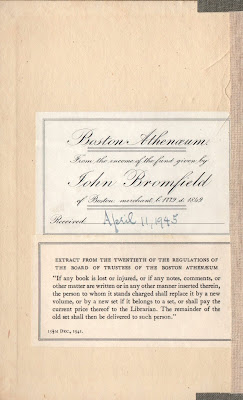 Boston Athenæum.
From the income of the fund given by
John Bromfield
of Boston, merchant, b. 1779 d. 1849
Received April 11, 1945
EXTRACT FROM THE TWENTIETH OF THE REGULATIONS OF
THE BOARD OF TRUSTEES OF THE BOSTON ATHENÆUM
"If any book is lost or injured, or if any notes, comments, or
other matter are written or in any other manner inserted therein,
the person to whom it stands charged shall replace it by a new
volume, or by a new set if it belongs to a set, or shall pay the
current price thereof to the Librarian. The remainder of the
old set shall then be delivered to such person."
Dec., 1941.